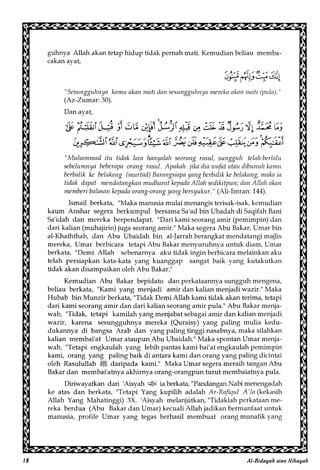 guhnya Allah akan tetap hidup tidak pernah mati. Kemudian beliau memba-
cakan ayat,
إِنَّكَ مَيِّتٌ وَإِنَّهُمْ مَيِّتُونَ
"Sesungguhnya kamu akan mati dan sesungguhnya mereka akan mati (pula)."
(Az-Zumar: 30).
Dan ayat,
وَمَا مُحَمَّدٌ إِلَّا رَسُولٌ قَدْ خَلَتْ مِنْ قَبْلِهِ الرُّسُلُ أَفَإِنْ مَاتَ أَوْ قُتِلَ انْقَلَبْتُمْ عَلَى
أَعْقَابِكُمْ وَمَنْ يَنْقَلِبْ عَلَى عَقِبَيْهِ فَلَنْ يَضُرَّ اللَّهَ شَيْئًا وَسَيَجْزِي اللَّهُ الشَّاكِرِينَ
"Muhammad itu tidak lain hanyalah seorang rasul, sungguh telah berlalu
sebelumnya beberapa orang rasul. Apakah jika dia wafat atau dibunuh kamu
berbalik ke belakang (murtad) Barangsiapa yang berbalik ke belakang, maka ia
tidak dapat mendatangkan mudharat kepada Allah sedikitpun; dan Allah akan
memberi balasan kepada orang-orang yang bersyukur." (Ali-Imran: 144).
Ismail berkata, "Maka manusia mulai menangis terisak-isak, kemudian
kaum Anshar segera berkumpul bersama Sa'ad bin Ubadah di Saqifah Bani
Sa'idah dan mereka berpendapat, "Dari kami seorang amir (pemimpin) dan
dari kalian (muhajirin) juga seorang amir." Maka segera Abu Bakar, Umar bin
al-Khaththab, dan Abu Ubaidah bin al-Jarrah berangkat mendatangi majlis
mereka, Umar berbicara tetapi Abu Bakar menyuruhnya untuk diam, Umar
berkata, "Demi Allah sebenarnya aku tidak ingin berbicara melainkan aku
telah persiapkan kata-kata yang kuanggap sangat baik yang kutakutkan
tidak akan disampaikan oleh Abu Bakar."
Kemudian Abu Bakar berpidato dan perkataannya sungguh mengena,
beliau berkata, "Kami yang menjadi amir dan kalian menjadi wazir." Maka
Hubab bin Munzir berkata, "Tidak Demi Allah kami tidak akan terima, tetapi
dari kami seorang amir dan dari kalian seorang amir pula." Abu Bakar menja-
wab, "Tidak, tetapi kamilah yang menjabat sebagai amir dan kalian menjadi
wazir, karena sesungguhnya mereka (Quraisy) yang paling mulia kedu-
dukannya di bangsa Arab dan yang paling tinggi nasabnya, maka silahkan
kalian membai'at Umar ataupun Abu Ubaidah." Maka spontan Umar menja-
wab, "Tetapi engkaulah yang lebih pantas kami bai'at engkaulah pemimpin
kami, orang yang paling baik di antara kami dan orang yang paling dicintai
oleh Rasulullah ﷺ daripada kami." Maka Umar segera meraih tangan Abu
Bakar dan membai'atnya akhirnya orang-orangpun turut membaiatnya pula.
Diriwayatkan dari 'Aisyah ia berkata, "Pandangan Nabi menengadah
ke atas dan berkata, "Tetapi Yang kupilih adalah Ar-Rafiqul A'la (kekasih
Allah Yang Mahatinggi) 3X. 'Aisyah melanjutkan, "Tidaklah perkataan me-
reka berdua (Abu Bakar dan Umar) kecuali Allah jadikan bermanfaat untuk
manusia, profile Umar yang tegas berhasil membuat orang munafik yang
18
Al-Bidayah wan Nihayah